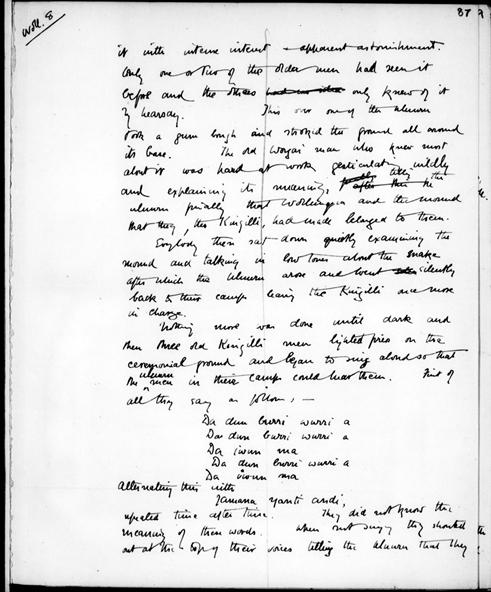 Woll. 8
87
it with intense interest & apparent astonishment.
Only one or two of the older men had seen it
before and the others had no idea only knew of it
by hearsay. This over one of the Uluuru
took a gum bough and stroked the ground all around
its base. The old Worgai man who knew most
about it was hard at work gesticulating wildly
and explaining its meaning, telling the
Uluuru finally that Wollunqua and the mound
that they, the Kingilli, had made belonged to them.
Everybody then sat down quietly examining the
mound and talking in low tones about the snake
after which the Uluuru arose and went silently
back to their camps leaving the Kingilli once more
in charge.
Nothing more was done until dark and
then three old Kingilli men lighted fires on the
ceremonial ground and began to sing aloud so that
the Uluuru men in their camps could hear them. First of
all they sang as follows, —
Da dun burri wurri a
Da dun burri wurri a
Da iwun ma
Da dun burri wurri a
Da iwun ma
alternating this with
Yamana yanti andi,
repeated time after time. They did not know the
meaning of these words. When not singing they shouted
out at the top of their voices telling the Uluuru that they